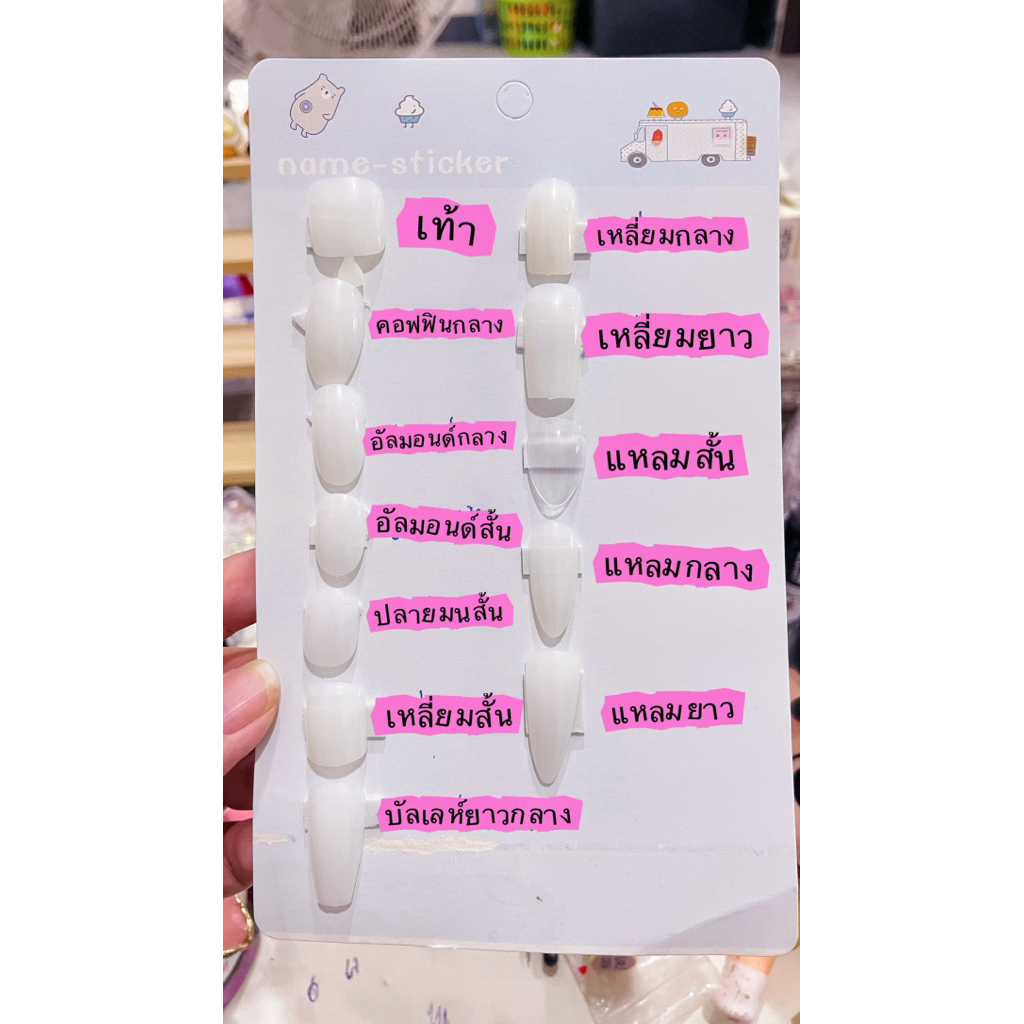 name-sticker
เท้า
คอฟฟินกลาง
อัลมอนด์กลาง
อัลมอนด์สั้น
ปลายมนสั้น
เหลี่ยมสั้น
บัลเลห์ยาวกลาง
เหลี่ยมกลาง
เหลี่ยมยาว
แหลมสั้น
แหลมกลาง
แหลมยาว